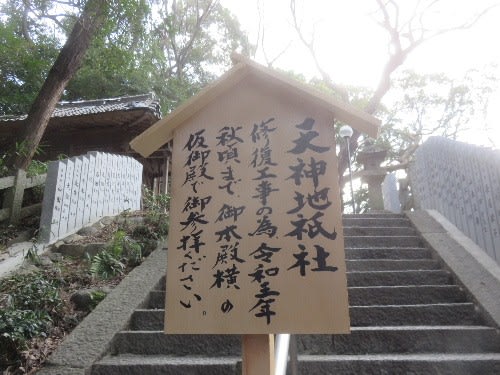 天神地祇社
修復工事の為 令和五年
秋頃まで、御本殿横の
仮御殿で御参拝ください。